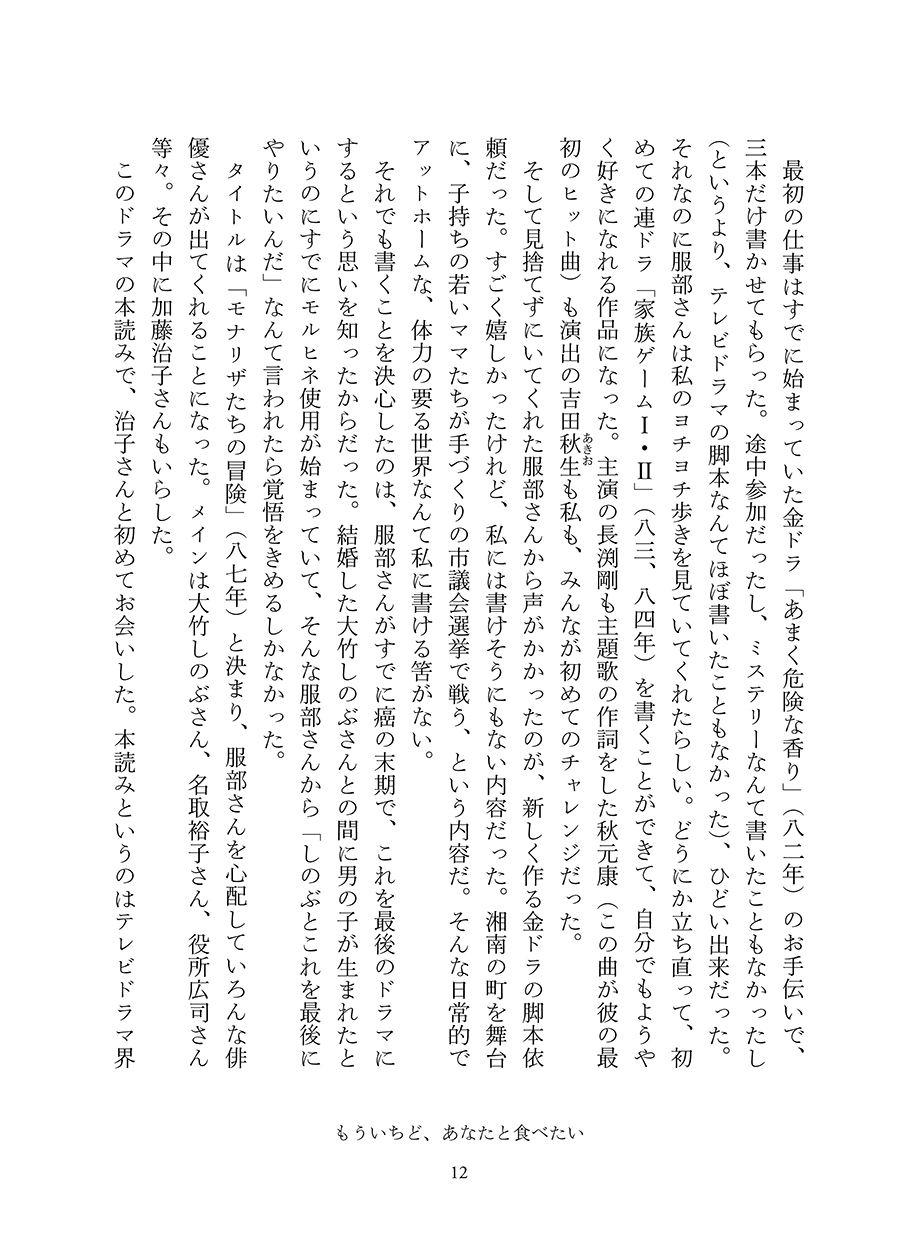 最初の仕事はすでに始まっていた金ドラ「あまく危険な香り」（八二年）のお手伝いで、
三本だけ書かせてもらった。途中参加だったし、ミステリーなんて書いたこともなかったし
（というより、テレビドラマの脚本なんてほぼ書いたこともなかった）、ひどい出来だった。
それなのに服部さんは私のヨチヨチ歩きを見ていてくれたらしい。どうにか立ち直って、初
めての連ドラ「家族ゲームⅠ・Ⅱ」（八三、八四年）を書くことができて、自分でもようや
く好きになれる作品になった。主演の長渕剛も主題歌の作詞をした秋元康（この曲が彼の最
初のヒット曲）も演出の吉田秋生も私も、みんなが初めてのチャレンジだった。
あきお
そして見捨てずにいてくれた服部さんから声がかかったのが、新しく作る金ドラの脚本依
頼だった。すごく嬉しかったけれど、私には書けそうにもない内容だった。湘南の町を舞台
に、子持ちの若いママたちが手づくりの市議会選挙で戦う、という内容だ。そんな日常的で
アットホームな、体力の要る世界なんて私に書ける筈がない。
それでも書くことを決心したのは、服部さんがすでに癌の末期で、これを最後のドラマに
するという思いを知ったからだった。結婚した大竹しのぶさんとの間に男の子が生まれたと
いうのにすでにモルヒネ使用が始まっていて、そんな服部さんから「しのぶとこれを最後に
やりたいんだ」なんて言われたら覚悟をきめるしかなかった。
タイトルは「モナリザたちの冒険」（八七年）と決まり、服部さんを心配していろんな俳
優さんが出てくれることになった。メインは大竹しのぶさん、名取裕子さん、役所広司さん
等々。その中に加藤治子さんもいらした。
このドラマの本読みで、治子さんと初めてお会いした。本読みというのはテレビドラマ界
もういちど、あなたと食べたい
12